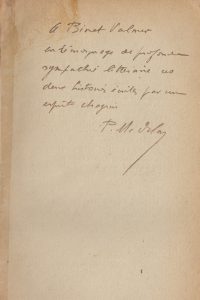 A Binet Valmer
en témoignage de profonde
sympathie littéraire ces
deux histoires écrites par un
esprit chagrin
P.